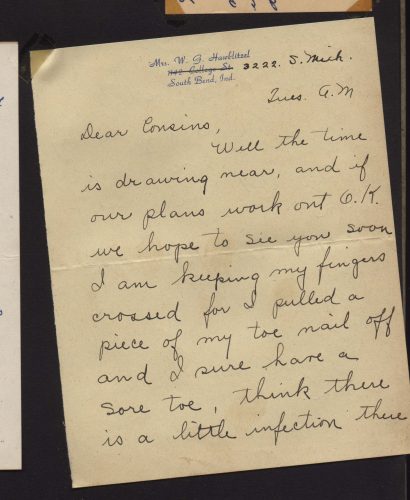 Mrs. W. G. Hawblitzel
1142 College St. 3222. S. Mich.
South Bend, Ind.
Tues. A.M
Dear Cousins,
Well the time
is drawing near, and if
our plans work out O.K.
we hope to see you soon
I am keeping my fingers
crossed for I pulled a
piece of my toe nail off
and I sure have a
sore toe, think there
is a little infection there